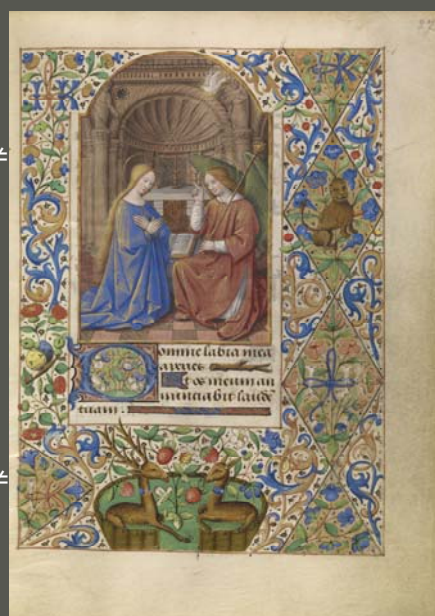 27
IK
IK
Domine labia mea
aperies
Et os meum an
nunciabit laudē
tuam :